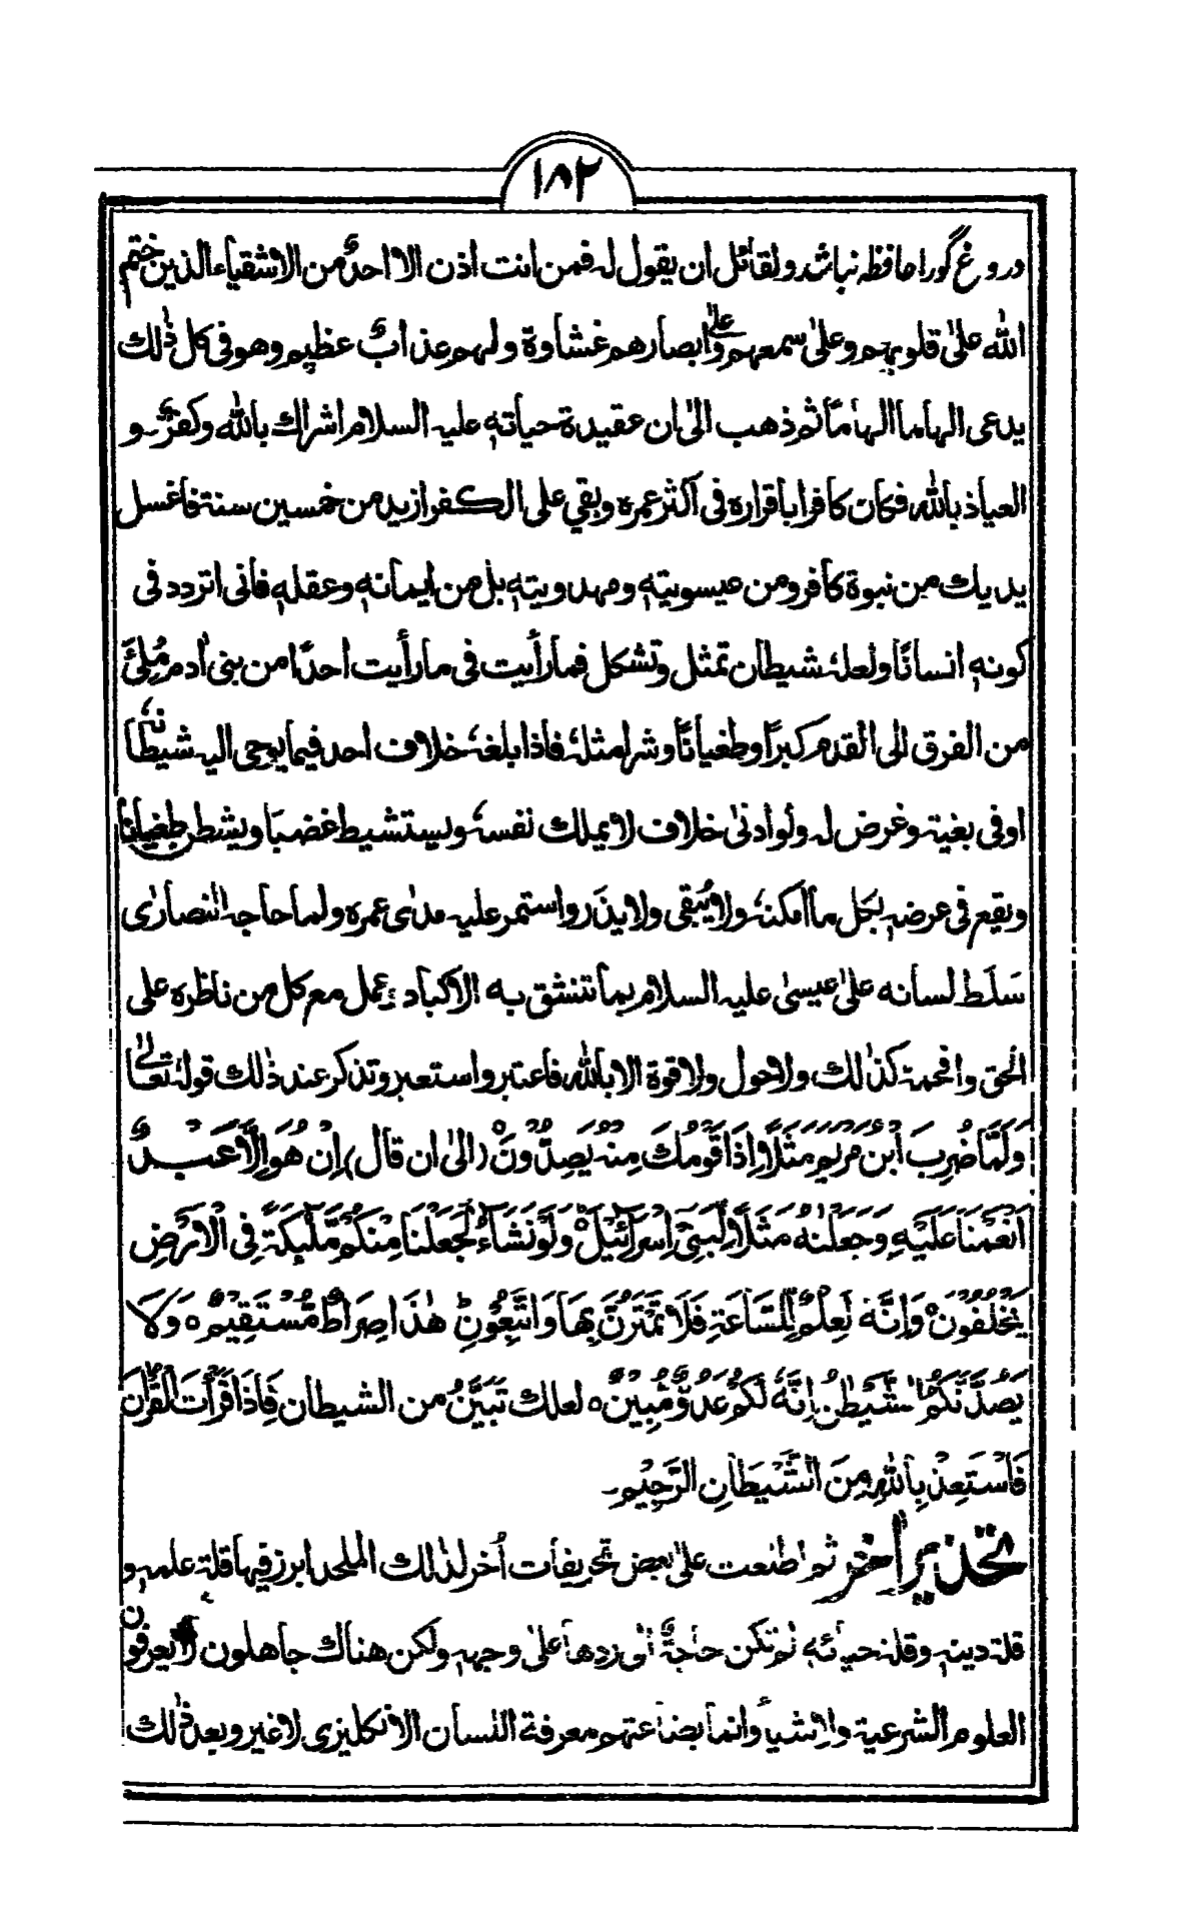 ١٨٢
دروغ گورا حافظه نباشد ولقائل ان يقول له فمن انت اذن الا احدٌ من الاشقياء الذين ختم
الله علىٰ قلوبهم وعلىٰ سمعهم وعلىٰ ابصارهم غشاوة ولهم عذابٌ عظيم وهو فى كل ذٰلك
يدعى الهاما الهامًا ثم ذهب الىٰ ان عقيدة حياته عليه السلام اشراك بالله وكفرٌ و
العياذ بالله فكان كافرا باقراره فى اكثر عمره وبقي على الكفر ازيد من خمسين سنة فاغسل
يديك من نبوة كافر ومن عيسويته ومهدويته بل من ايمانه وعقله فانى اتردد فى
كونه انسانًا ولعله شيطان تمثل وتشكل فما رأيت فى ما رأيت احدًا من بنى اٰدم مُلِئَ
من الفرق الى القدم كبرًا وطغيانًا وشرا مثله فاذا بلغهٗ خلاف احد فيما يوحى اليه شيطانهٗ
او فى بغية وغرض له ولو ادنىٰ خلاف لا يملك نفسهٗ ويستشيط غضبًا ويشطر طغيانا
ويقع فى عرضه بكل ما امكنهٗ ولا يُبقى ولا يذر واستمر عليه مدىٰ عمره ولما حاجه النصارىٰ
سَلَط لسانه علىٰ عيسىٰ عليه السلام بما تنشق به الاكباد عمل مع كل من ناظره على
الحق وافحمه كذٰلك ولا حول ولا قوة الا بالله فاعتبر واستعبر وتذكر عند ذٰلك قولهٗ تعالىٰ
وَلَمَّا ضُرِبَ ابْنُ مَرْيَمَ مَثَلًا اِذَا قَوْمُكَ مِنْهُ يَصِدُّوْنَ (الىٰ ان قال) اِنْ هُوَ اِلَّا عَبْدٌ
اَنْعَمْنَا عَلَيْهِ وَجَعَلْنٰهُ مَثَلًا لِّبَنِىْٓ اِسْرَآئِيْلَ وَلَوْ نَشَآءُ لَجَعَلْنَا مِنْكُمْ مَّلٰٓئِكَةً فِى الْاَرْضِ
يَخْلُفُوْنَ وَاِنَّهٗ لَعِلْمٌ لِّلسَّاعَةِ فَلَا تَمْتَرُنَّ بِهَا وَاتَّبِعُوْنِ هٰذَا صِرَاطٌ مُّسْتَقِيْمٌ ه وَلَا
يَصُدَّنَّكُمُ الشَّيْطٰنُ اِنَّهٗ لَكُمْ عَدُوٌّ مُّبِيْنٌ ه لعلك تَبَيَّنُ من الشيطان فَاِذَا قَرَأْتَ الْقُرْاٰنَ
فَاسْتَعِذْ بِاللهِ مِنَ الشَّيْطَانِ الرَّجِيْمِ۔
تحذير اٰخر ثم اطلعت علىٰ بعض تحريفات اُخر لذٰلك الملحد ابرز فيها قلة علمه و
قلة دينه وقلة حيائه لم تكن حاجةٌ الىٰ ردها علىٰ وجهه ولكن هناك جاهلون لا يعرفون
العلوم الشرعية والاشياء وانما بضاعتهم معرفة اللسان الانكليزى لا غير وبعد ذٰلك